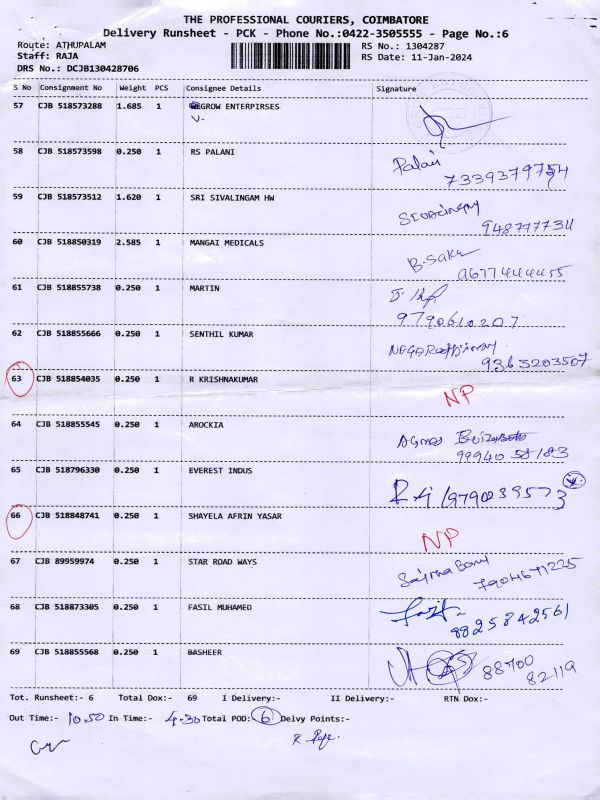 THE PROFESSIONAL COURIERS, COIMBATORE
Delivery Runsheet - PCK - Phone No.:0422-3505555 - Page No.:6
Route: ATHUPALAM RS No.: 1304287
Staff: RAJA RS Date: 11-Jan-2024
DRS No.: DCJB130428706
S No Consignment No Weight PCS Consignee Details Signature
57 CJB 518573288 1.685 1 GROW ENTERPIRSES
58 CJB 518573598 0.250 1 RS PALANI Palani
7339379754
59 CJB 518573512 1.620 1 SRI SIVALINGAM HW
9487777311
60 CJB 518850319 2.585 1 MANGAI MEDICALS B-Saku
9677444455
61 CJB 518855738 0.250 1 MARTIN
9790610207
62 CJB 518855666 0.250 1 SENTHIL KUMAR
9363203507
63 CJB 518854035 0.250 1 R KRISHNAKUMAR NP
64 CJB 518855545 0.250 1 AROCKIA Agnes
99940 58183
65 CJB 518796330 0.250 1 EVEREST INDUS 9790039573
66 CJB 518848741 0.250 1 SHAYELA AFRIN YASAR NP
67 CJB 89959974 0.250 1 STAR ROAD WAYS
7904671225
68 CJB 518873305 0.250 1 FASIL MUHAMED Fasil
8825842561
69 CJB 518855568 0.250 1 BASHEER 88700
82119
Tot. Runsheet:- 6 Total Dox:- 69 I Delivery:- II Delivery:- RTN Dox:-
Out Time:- 10.50 In Time:- 4.30 Total POD: 6 Delvy Points:-